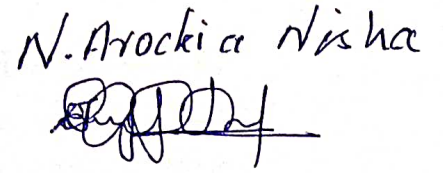 N. Arockia Nisha